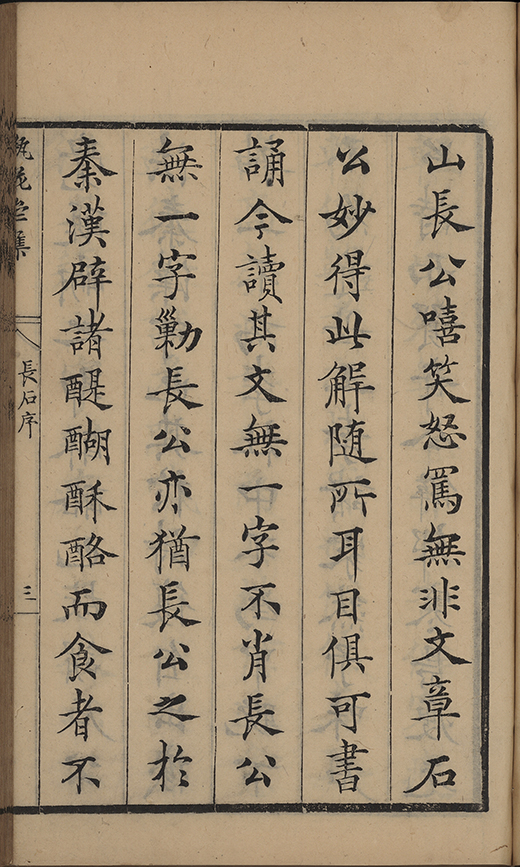 山長公嘻笑怒罵無非文章石
公妙得此解随所耳目俱可書
誦今讀其文無一字不肖長公
無一字勦長公亦猶長公之於
秦漢辟諸醍醐酥酪而食者不
集
長石序
三